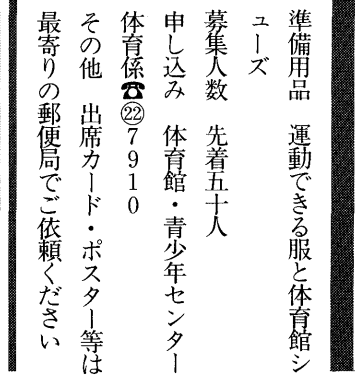 準備用品　運動できる服と体育館シ
ューズ
募集人数　先着五十人
申し込み　体育館・青少年センター
体育係☎㉒7910
その他　出席カード・ポスター等は
最寄りの郵便局でご依頼ください